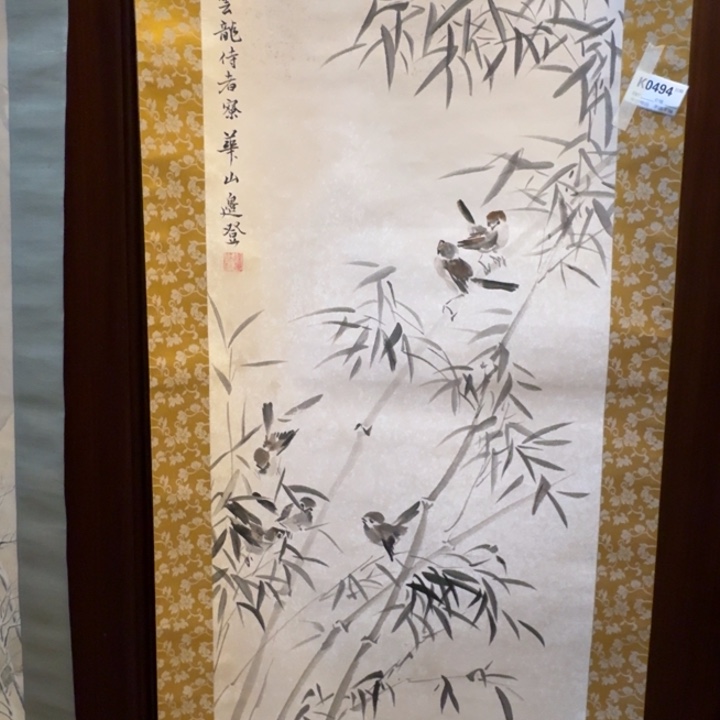 龍侍者寮華山邊登
K0494